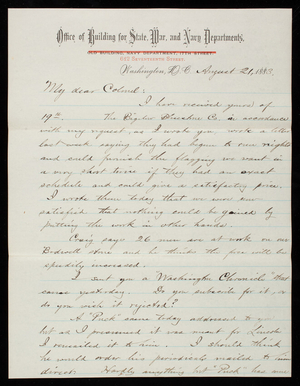 Office of Building for State, War, and Navy Departments,
OLD BUILDING, NAVY DEPARTMENT, 17TH STREET,
Washington, D.C. August 21, 1883.
My dear Colonel:
I have received yours of
19th. The Bigelow Bluestone Co. in accordance
with my request, as I wrote you, wrote a letter
last week saying they had begun to and
and could furnish the flagging we want in
a very short time if they had an exact
schedule and could give a satisfactory price.
I wrote them today that we were now
satisfied that nothing could be gained by
putting the work in other hands.
Craig says 26 men are at work on our
stone and he thinks the force will be
speedily increased.
I sent you a "Washington Chronicle" that
came yesterday. Do you subscribe for it, or
do you wish it rejected?
A "Puck" came today addressed to you
but as I presumed it was meant for Lincoln
I remailed it to him. I should think
he would order his periodicals mailed to him
direct. Hardly anything but "Puck" has